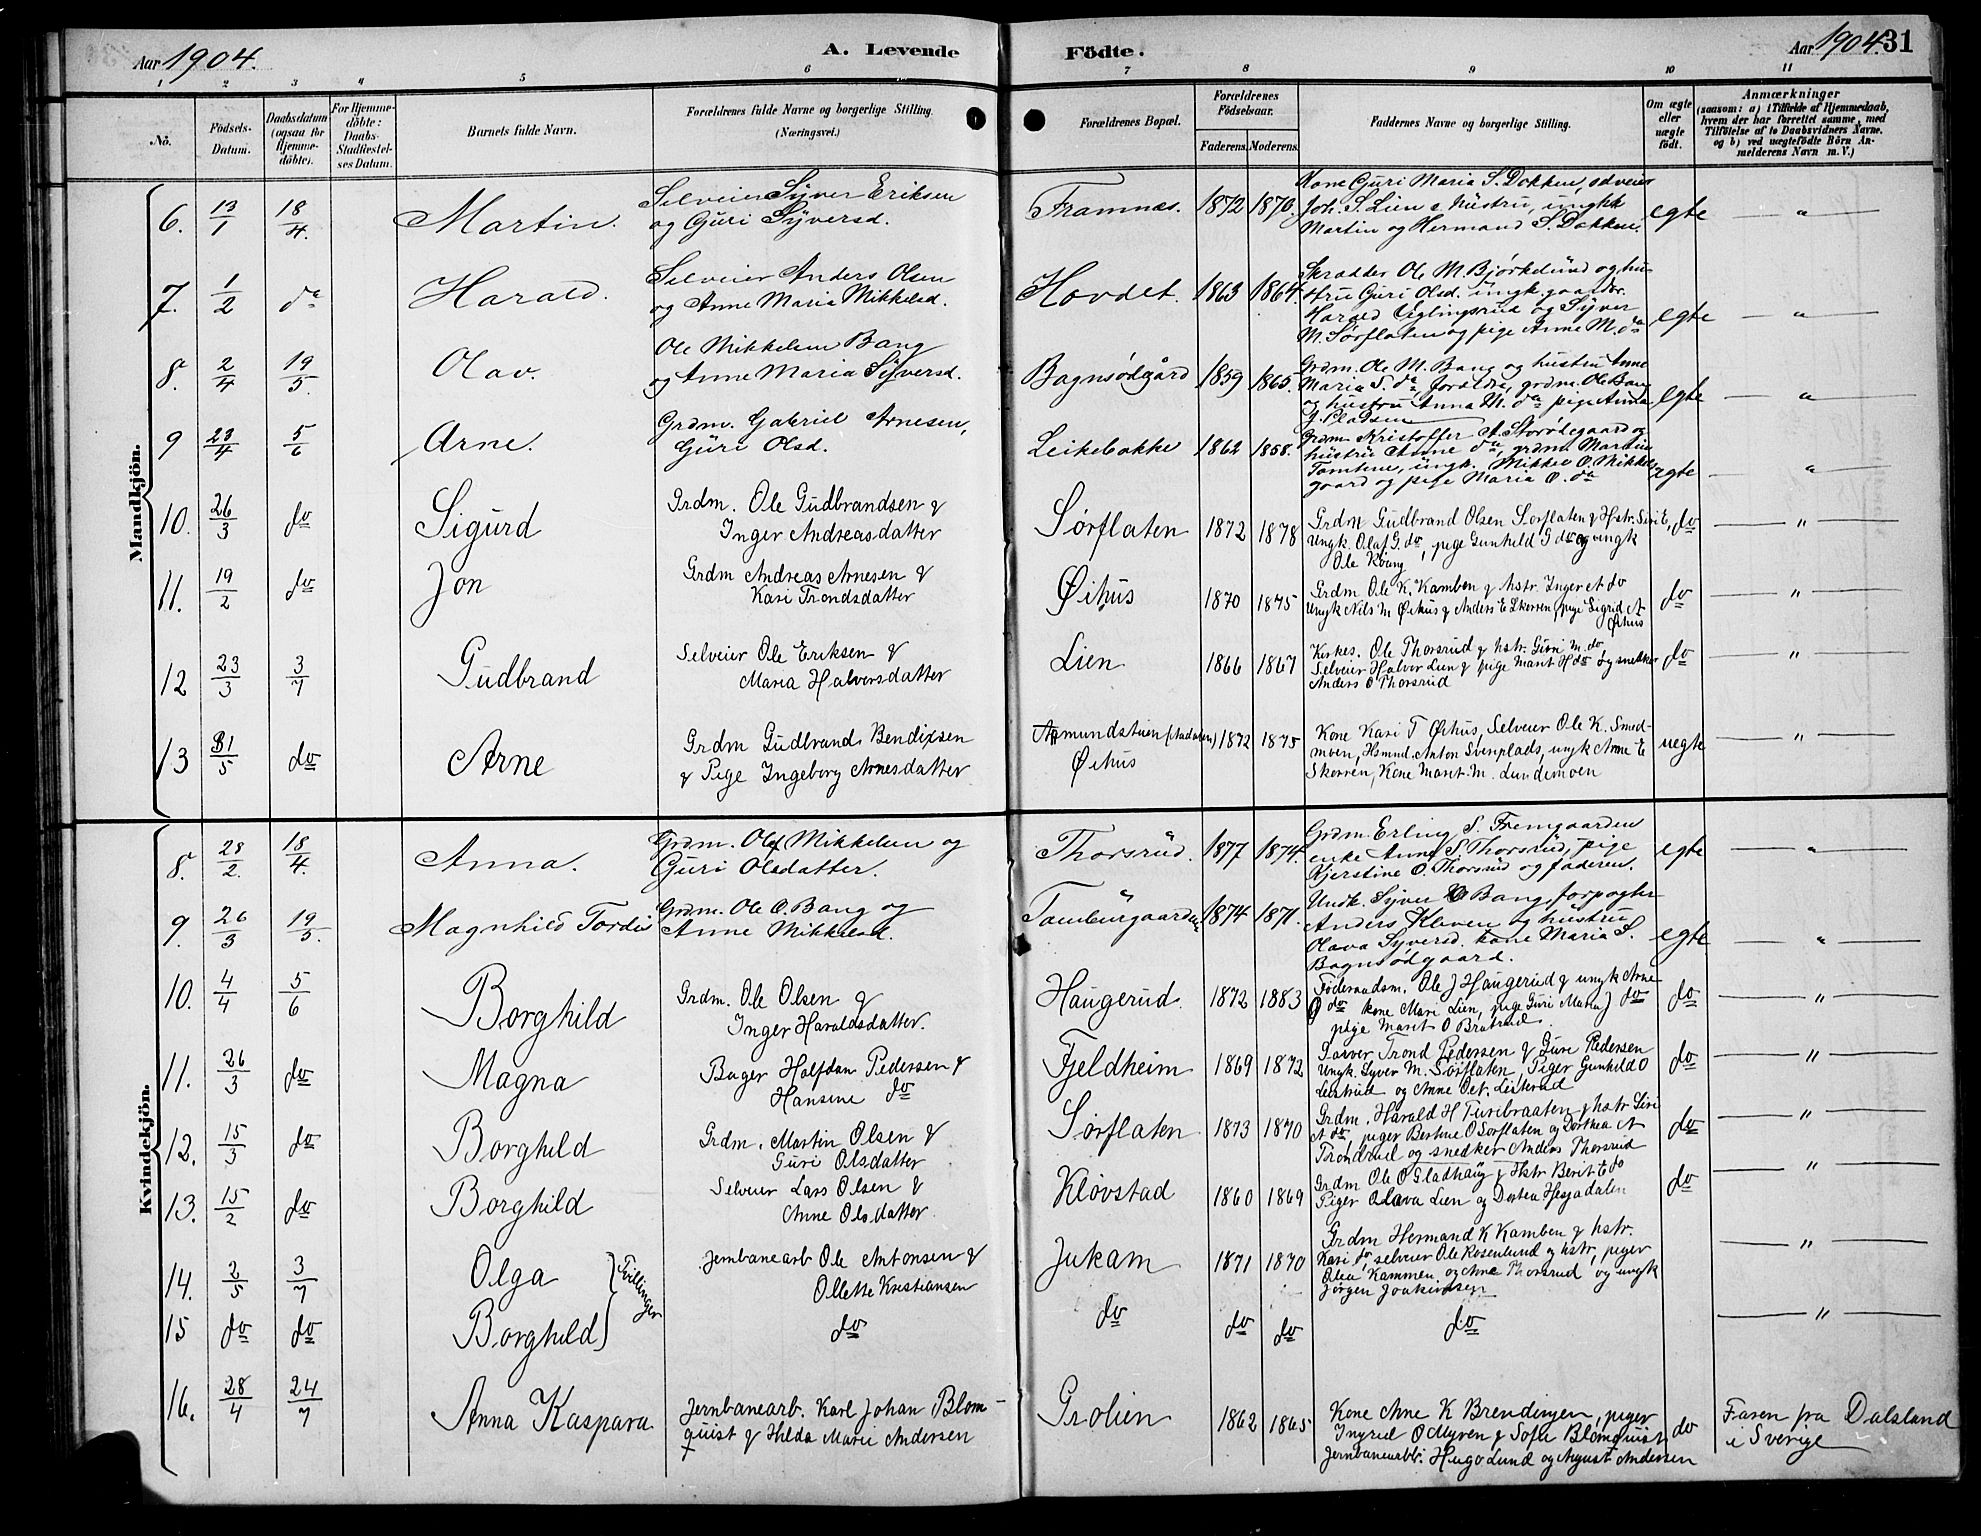 Aar 1904. A. Levende Födte. Aar 1904. 31
1 2 3 4 5 6 7 8 9 10 11
No.
Födsels-Datum.
Daabsdatum (ogsaa for Hjemmedöbte).
For Hjemmedöbte: Daabs-Stadfæstelses Datum.
Barnets fulde Navn.
Forældrenes fulde Navne og borgerlige Stilling. (Næringsvei.)
Forældrenes Bopæl.
Forældrenes Födselsaar.
Faderens. Moderens.
Faddernes Navne og borgerlige Stilling.
Om ægte eller uægte födt.
Anmærkninger
(saasom: a) i Tilfælde af Hjemmedaab,
hvem der har forrettet samme, med
Tilföielse af to Daabsvidners Navne.
og b) ved uægtefödte Börn Anmelderens Navn m. V.)
Mandkjön.
6. 13/1 18/4. Martin. Selveier Syver Eriksen
og Guri Syversd. Framnæs. 1872 1870. Kone Guri Maria S. Dokken, selveier
Joh. S. Lien & hustru, ungkk
Martin og Hermand S. Dokken. egte — " —
7. 1/2 do Harald. Selveier Anders Olsen
og Anne Maria Mikkelsd. Hovdet. 1863 1864. Skrædder Ole M. Bjørkelund og hustru
Guri Olsd. ungk. gaardbr.
Harald Veglingsrud og Syver
M. Sørflaten og pige Anne M. do egte — " —
8. 2/4 19/5. Olav. Ole Mikkelsen Bang
og Anne Maria Syversd. Bagnsødgård 1859 1865. Grdm. Ole M. Bang og hustru Anne
Maria S. do, forældre, grdm. Ole Bang
og hustru Anna M. do pige Anna
J. Pladsen egte — " —
9 23/4 5/6 Arne. Grdm. Gabriel Arnesen,
Guri Olsd. Leikebakke 1862 1858. Grdm. Kristoffer A. Storødegaard og
hustru Anne do, grdm. Martin
Tomten, ungk. Mikkel O. Mikkelsgaard
og pige Maria O. do egte — " —
10. 26/3 do Sigurd Grdm. Ole Gudbrandsen &
Inger Andreasdatter Sørflaten 1872 1878 Grdm Gudbrand Olsen Sørflaten & Hstr. Siri E,
Ungk. Olaf G. do, pige Gunhild G do og ungk
Ole Kvang do — " —
11. 19/2 do Jon Grdm Andreas Arnesen &
Kari Trondsdatter Øihus 1870 1875 Grdm Ole K. Kamben & hstr. Inger A do
Ungk Nils M Øihus & Anders E Skorren, pige Sigrid A
Øihus do — " —
12 23/3 3/7 Gudbrand Selveier Ole Eriksen &
Maria Halversdatter Lien 1866 1867 Kirkes. Ole Thorsrud & hstr. Guri M. do
Selveier Halvor Lien & pige Marit H do og snekker
Anders O Thorsrud do — " —
13 31/5 do Arne Grdm Gudbrand Bendixsen
& Pige Ingeborg Arnesdatter
Øihus 1872 1875 Kone Kari T Øihus, Selveier Ole K. Smedmoen,
Hsmnd. Anton Svenplads, ungk Arne E
Skorren, Kone Marit M. Lundemoen uegte — " —
Kvindekjön.
8. 28/2. 18/4. Anna. Grdm. Ole Mikkelsen og
Guri Olsdatter. Thorsrud. 1877 1874. Grdm. Erling S. Fremgaarden
enke Anne S. Thorsrud, pige
Kjerstine O. Thorsrud og faderen. egte — " —
9. 26/3 19/5. Magnhild Tordis Grdm. Ole O. Bang og
Anne Mikkelsd. 1874 1871. Undk. Syver O Bang, forpagter
Anders Kleven og hustru
Olava Syversd. kone Maria S.
Bagnsødgaard. egte — " —
10. 4/4 5/6 Borghild Grdm. Ole Olsen &
Inger Haraldsdatter. Haugerud 1872 1883 Föderaadsm. Ole J Haugerud & ungk Arne
O do kone Mari Lien, pige Guri Maria J do
pige Marit O Bratrud do — " —
11. 26/3 do Magna Bager Halfdan Pedersen &
Hansine do Fjeldheim 1869 1872 Trond Pedersen & Guri Pedersen
Ungk. Syver M. Sørflaten, Piger Gunhild O
Leistrud og Anne Det. Leisterud do — " —
12. 15/3 do Borghild Grdm. Martin Olsen &
Guri Olsdatter Sørflaten 1873 1870 Grdm. Harald H Turibraaten & hstr Siri
A do, piger Bertine O Sørflaten og Dorthea A
Trondrud og snedker Anders Thorsrud do — " —
13. 15/2 do Borghild Selveier Lars Olsen &
Anne Olsdatter. Kløvstad 1860 1869 Grdm Ole O Gladhaug & Hstr Berit E do
Piger Olava Lien og Dortea Hegadalen do — " —
14. 2/5 3/7 Olga Tvillinger Jernbanearb Ole Antonsen &
Ollette Kristiansen Jukam 1871 1870 Grdm Hermand K Kamben & hstr.
Kari do, selveier Ole Rosenlund og hstr, piger
Olea Kammen og Anne Thorsrud og ungk
Jörgen Joakimsen — " —
15 do do Borghild do do do do do — " —
16. 28/4 24/7 Anna Kaspara Jernbanearb. Karl Johan Blomquist
& Hilda Marie Andersen Grolien 1862 1865 Kone Anne K Brendingen, piger
Ingrid O Myren & Sofie Blomquist
Jernbanearbb. Hugo Lund og August Andersen do Faren fra Dalsland
i Sverige